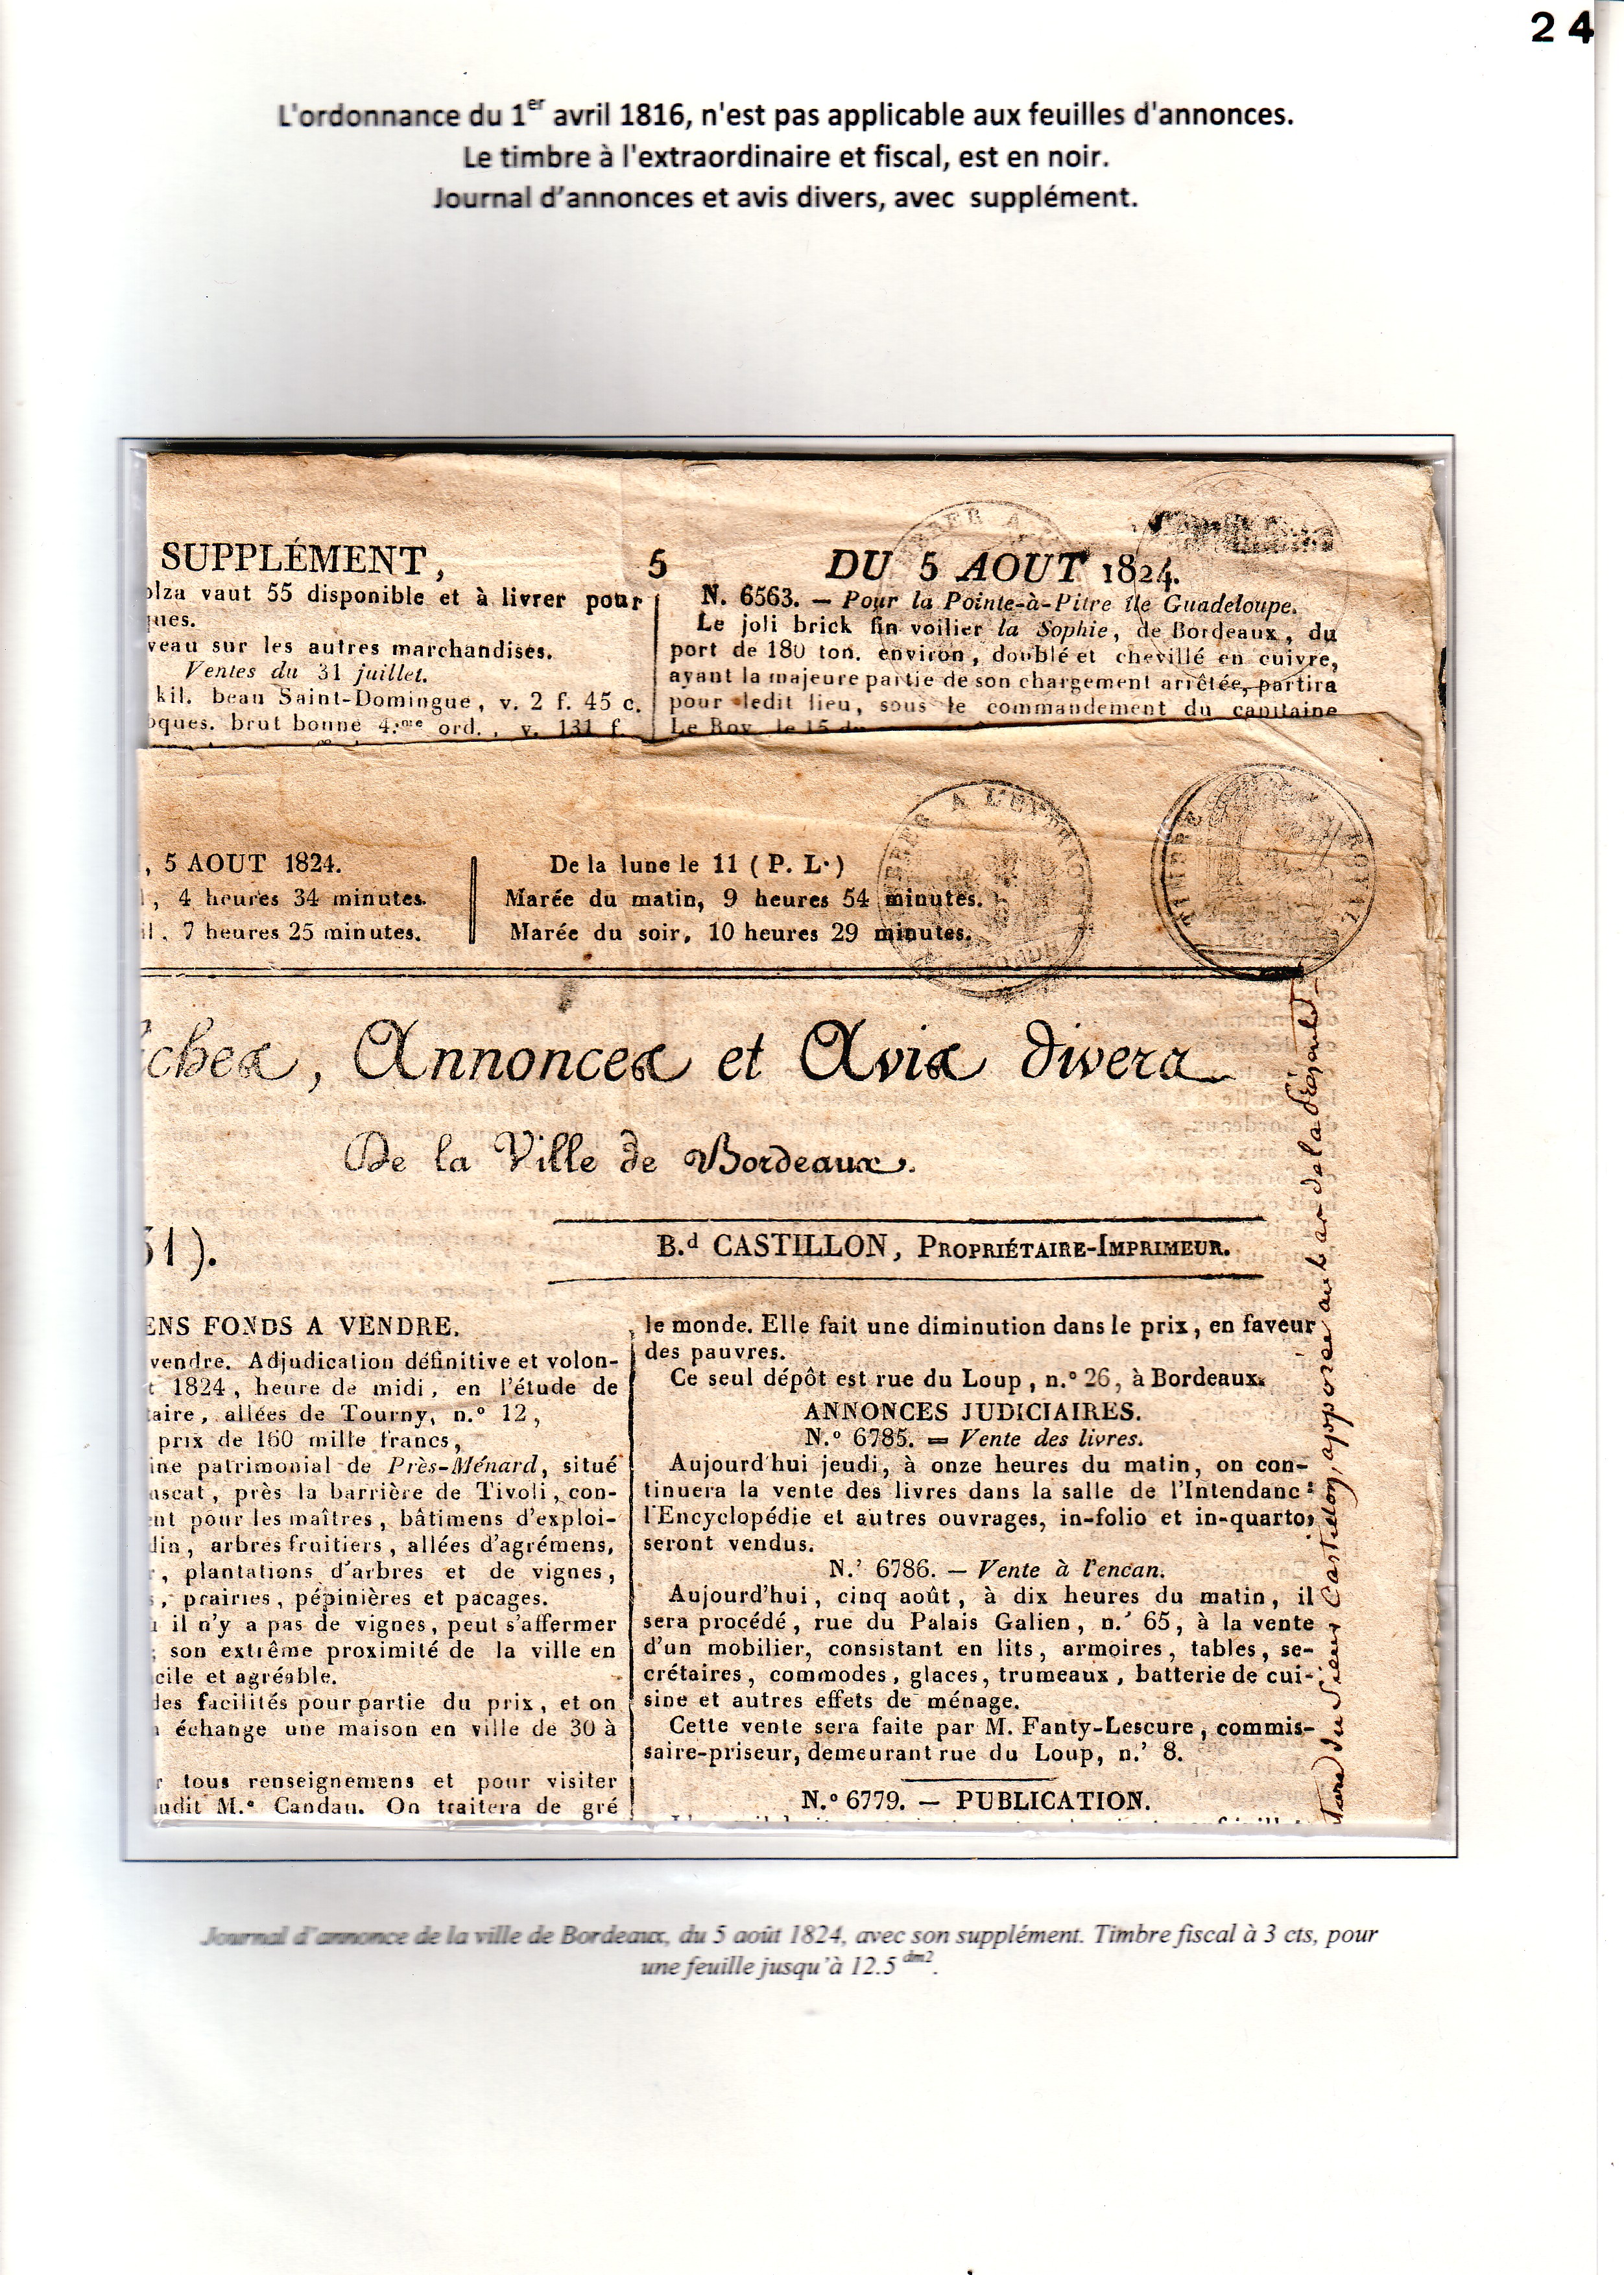 24
L'ordonnance du 1er avril 1816, n'est pas applicable aux feuilles d'annonces.
Le timbre à l'extraordinaire et fiscal, est en noir.
Journal d’annonces et avis divers, avec supplément.
SUPPLÉMENT,
5
DU 5 AOUT 1824.
olza vaut 55 disponible et à livrer pour
ques.
veau sur les autres marchandises.
Ventes du 31 juillet.
kil. beau Saint-Domingue, v. 2 f. 45 c.
oques. brut bonne 4.me ord., v. 131 f.
N. 6563. — Pour la Pointe-à-Pitre île Guadeloupe.
Le joli brick fin voilier la Sophie, de Bordeaux, du
port de 180 ton. environ, doublé et chevillé en cuivre,
ayant la majeure partie de son chargement arrêtée, partira
pour ledit lieu, sous le commandement du capitaine
Le Roy, le 15
TIMBRE A
, 5 AOUT 1824.
, 4 heures 34 minutes.
il, 7 heures 25 minutes.
De la lune le 11 (P. L.)
Marée du matin, 9 heures 54 minutes.
Marée du soir, 10 heures 29 minutes.
A L'EXTRAO
TIMBRE ROYAL
iches, Annonces et Avis divers
De la Ville de Bordeaux.
31).
B.d CASTILLON, PROPRIÉTAIRE-IMPRIMEUR.
ENS FONDS A VENDRE.
vendre. Adjudication définitive et volon-
t 1824, heure de midi, en l'étude de
taire, allées de Tourny, n.o 12,
prix de 160 mille francs,
ine patrimonial de Près-Ménard, situé
ascat, près la barrière de Tivoli, con-
ent pour les maîtres, bâtimens d'exploi-
din, arbres fruitiers, allées d'agrémens,
, plantations d'arbres et de vignes,
s, prairies, pépinières et pacages.
il n'y a pas de vignes, peut s'affermer
; son extrême proximité de la ville en
cile et agréable.
des facilités pour partie du prix, et on
échange une maison en ville de 30 à
r tous renseignemens et pour visiter
udit M.e Candau. On traitera de gré
le monde. Elle fait une diminution dans le prix, en faveur
des pauvres.
Ce seul dépôt est rue du Loup, n.o 26, à Bordeaux.
ANNONCES JUDICIAIRES.
N.o 6785. — Vente des livres.
Aujourd'hui jeudi, à onze heures du matin, on con-
tinuera la vente des livres dans la salle de l'Intendance:
l'Encyclopédie et autres ouvrages, in-folio et in-quarto,
seront vendus.
N.o 6786. — Vente à l'encan.
Aujourd'hui, cinq août, à dix heures du matin, il
sera procédé, rue du Palais Galien, n.o 65, à la vente
d'un mobilier, consistant en lits, armoires, tables, se-
crétaires, commodes, glaces, trumeaux, batterie de cui-
sine et autres effets de ménage.
Cette vente sera faite par M. Fanty-Lescure, commis-
saire-priseur, demeurant rue du Loup, n.o 8.
N.o 6779. — PUBLICATION.
ture du Sieur Castillon, apposée au bas de la présente
Journal d’annonce de la ville de Bordeaux, du 5 août 1824, avec son supplément. Timbre fiscal à 3 cts, pour
une feuille jusqu’à 12.5 dm2.